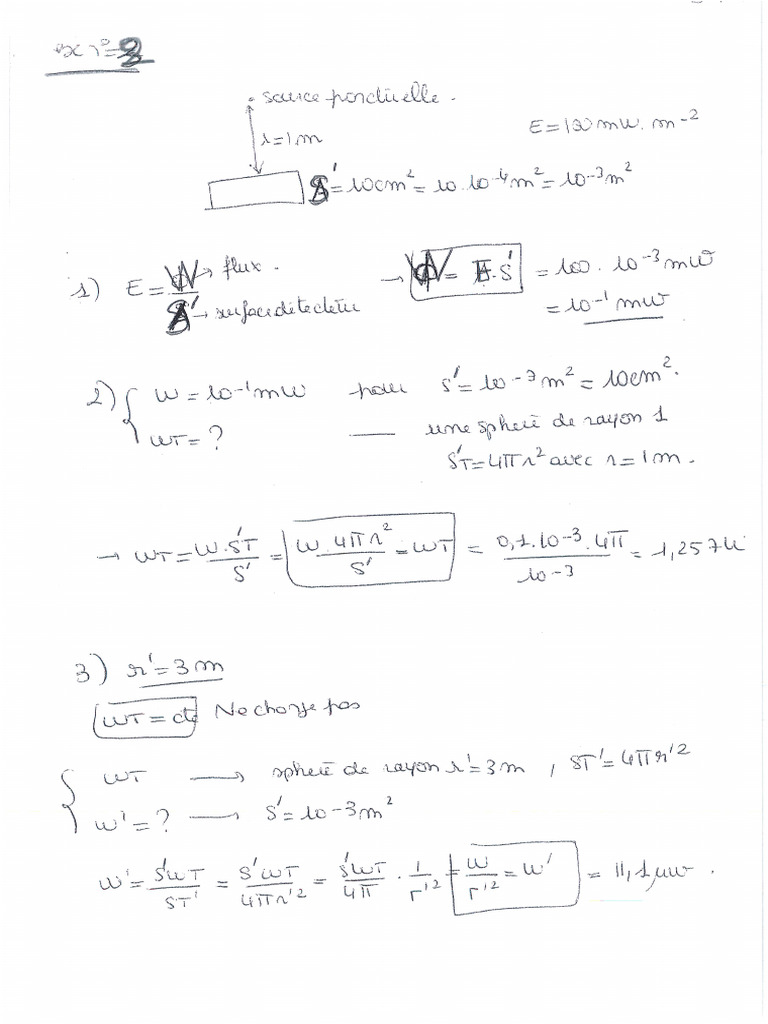 ex n°=3
source ponctuelle.
r=1m
E=100mW.m-2
S'=10cm²=10.10-4m²=10-3m²
1) E=W→flux.
S'→surface détecteur
→ W=E.S' =100.10-3mW
=10-1mW
2) W=10-1mW pour S'=10-3m²=10cm².
WT=? — une sphère de rayon 1
S'T=4πr² avec r=1m.
→ WT=W.S'T/S' = W.4πr²/S' = WT = 0,1.10-3.4π/10-3 = 1,257W
3) r'=3m
WT=cte Ne change pas
WT → sphère de rayon r'=3m, ST'=4πr'2
W'=? → S'=10-3m²
W'=S'WT/ST' = S'WT/4πr'2 = S'WT/4π . 1/r'2 = W/r'2 = W' = 11,1μW.